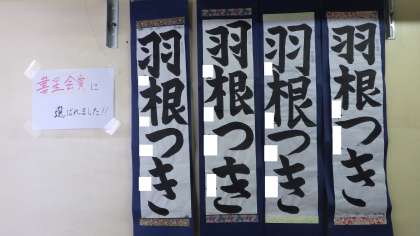 書星会賞に
選ばれました!!
羽根つき
羽根つき
羽根つき
羽根つき